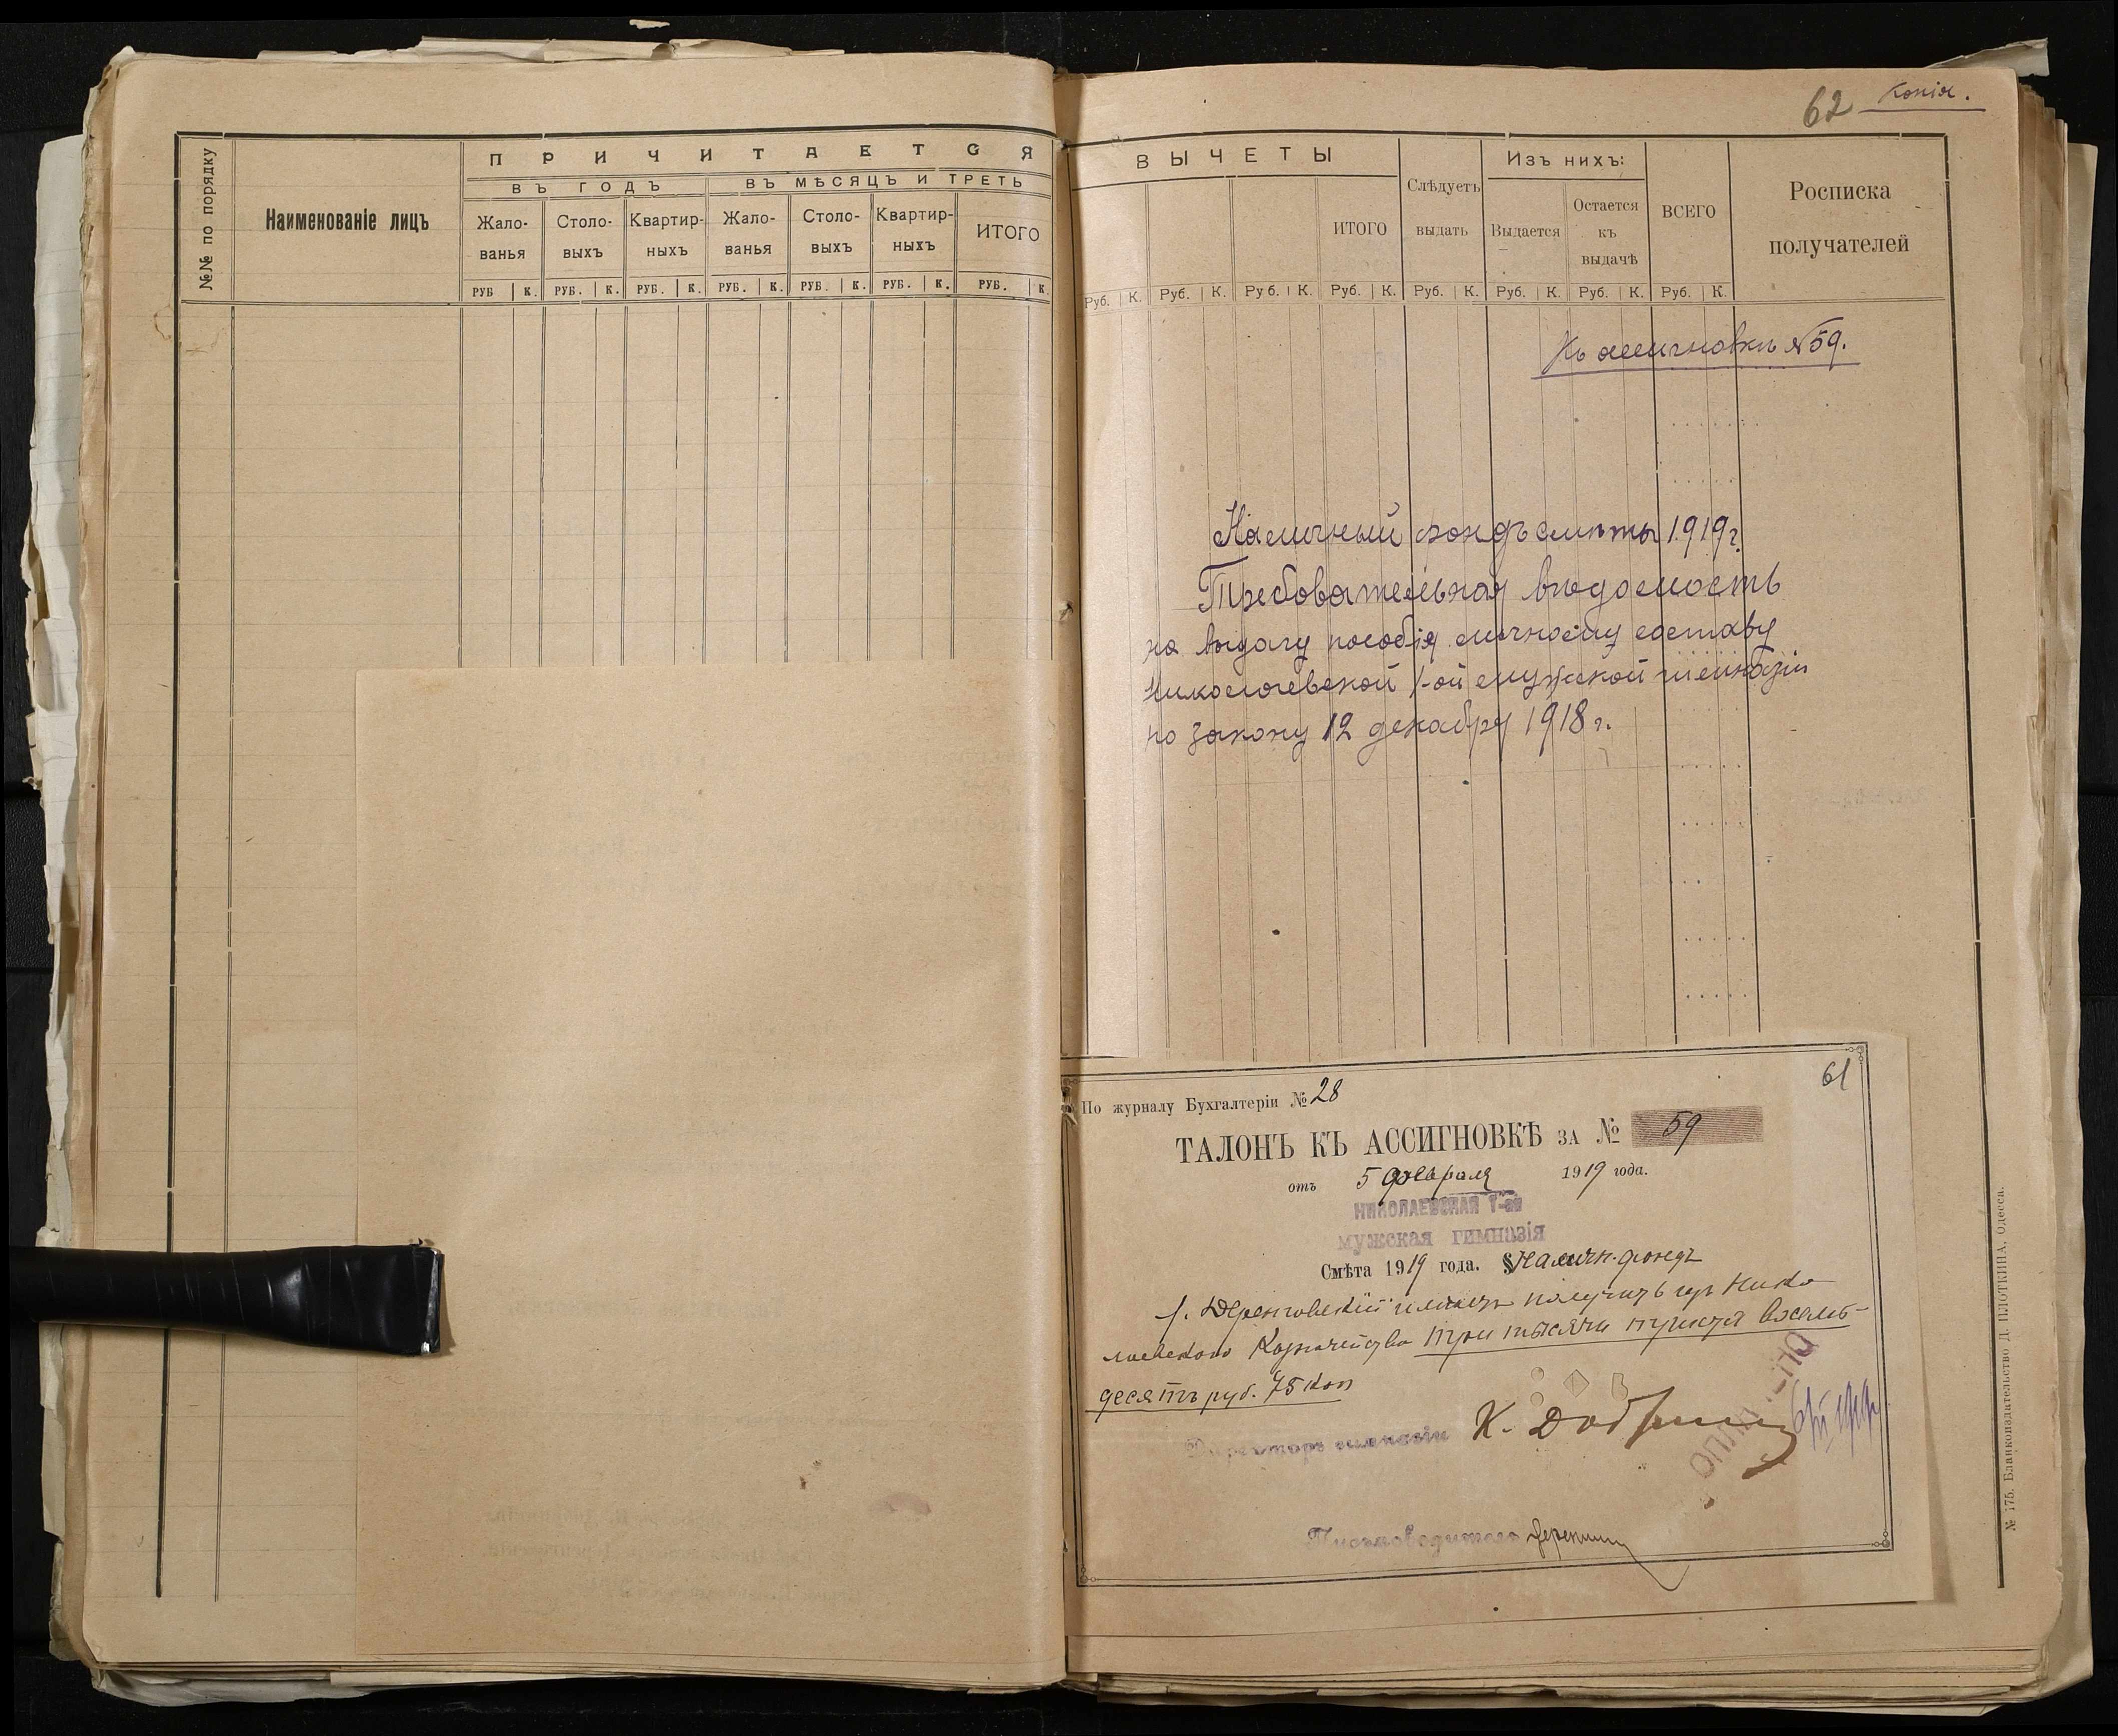 №№ по порядку
Наименованіе лицъ
ПРИЧИТАЕТСЯ
ВЪ ГОДЪ
ВЪ МѢСЯЦЪ И ТРЕТЬ
Жало-
ванья
Столо-
выхъ
Квартир-
ныхъ
Жало-
ванья
Столо-
выхъ
Квартир-
ныхъ
ИТОГО
РУБ К. РУБ. К. РУБ. К. РУБ. К. РУБ. К. РУБ. К. РУБ. К.
62 Копія.
ВЫЧЕТЫ
ИТОГО
Слѣдуетъ
выдать
Изъ нихъ:
Выдается
Остается
къ
выдачѣ
ВСЕГО
Росписка
получателей
Руб. К. Руб. К. Руб. К. Руб. К. Руб. К. Руб. К. Руб. К. Руб. К.
Къ ассигновкѣ №59.
Наличный фондъ смѣты 1919 г.
Требовательная вѣдомость
на выдачу пособія личному составу
Николаевской 1-ой мужской гимназіи
по закону 12 декабря 1918 г.
61
По журналу Бухгалтеріи № 28
ТАЛОНЪ КЪ АССИГНОВКѢ ЗА № 59
отъ 5 февраля 1919 года.
НИКОЛАЕВСКАЯ 1-ая
мужская гимназія
Смѣта 1919 года. § Наличн. фондъ
получить изъ Нико
лаевскаго Казначейства три тысячи триста восемь-
десятъ руб. 75 коп
Директоръ гимназіи К.
ОПЛАЧЕНО
Письмоводитель
№ 175. Бланкоиздательство Д. ПЛОТКИНА, Одесса.